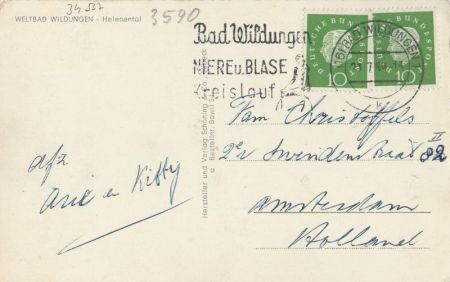 34537
3590
WELTBAD WILDUNGEN - Helenental
Bad Wildungen
NIERE u. BLASE
Kreislauf
DEUTSCHE BUNDESPOST
10
DEUTSCHE BUNDESPOST
10
BAD WILDUNGEN
Hersteller und Verlag Schöning
afz
Arie en Kitty
Fam Christoffels
2e Swindenstraat 82 II
Amsterdam
Holland